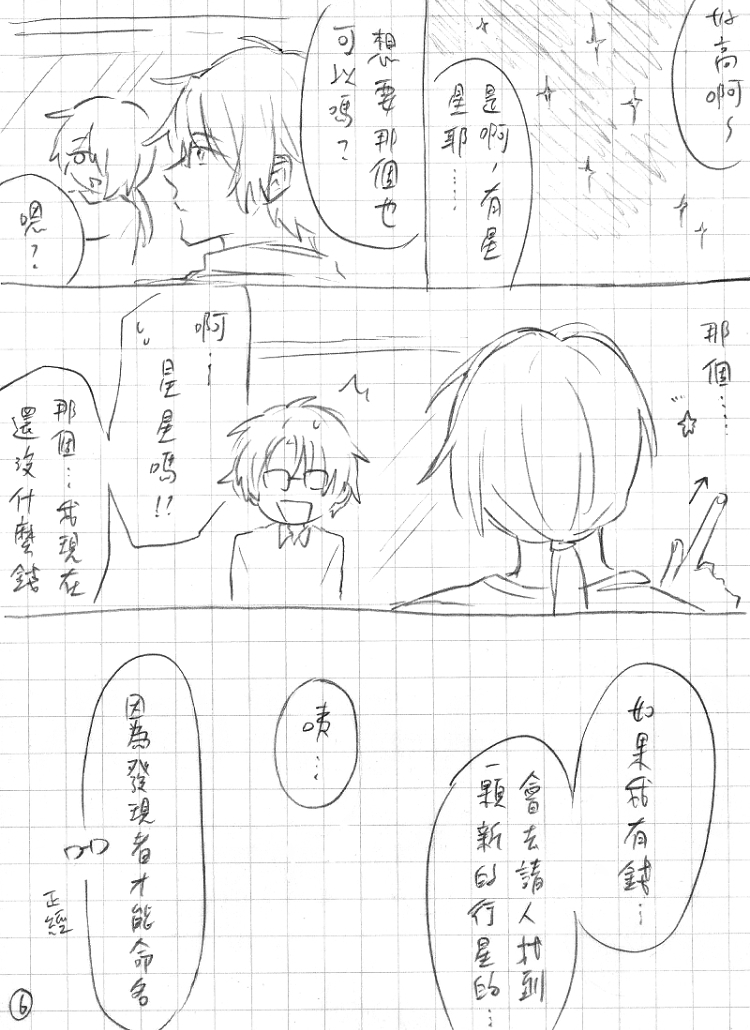 好高啊～
是啊，有星
星耶……
想要那個也
可以嗎？
嗯？
那個……
啊…
星星嗎!?
那個…我現在
還沒什麼錢
如果我有錢…
會去請人找到
一顆新的行星的…
咦…
因為發現者才能命名
正經
6